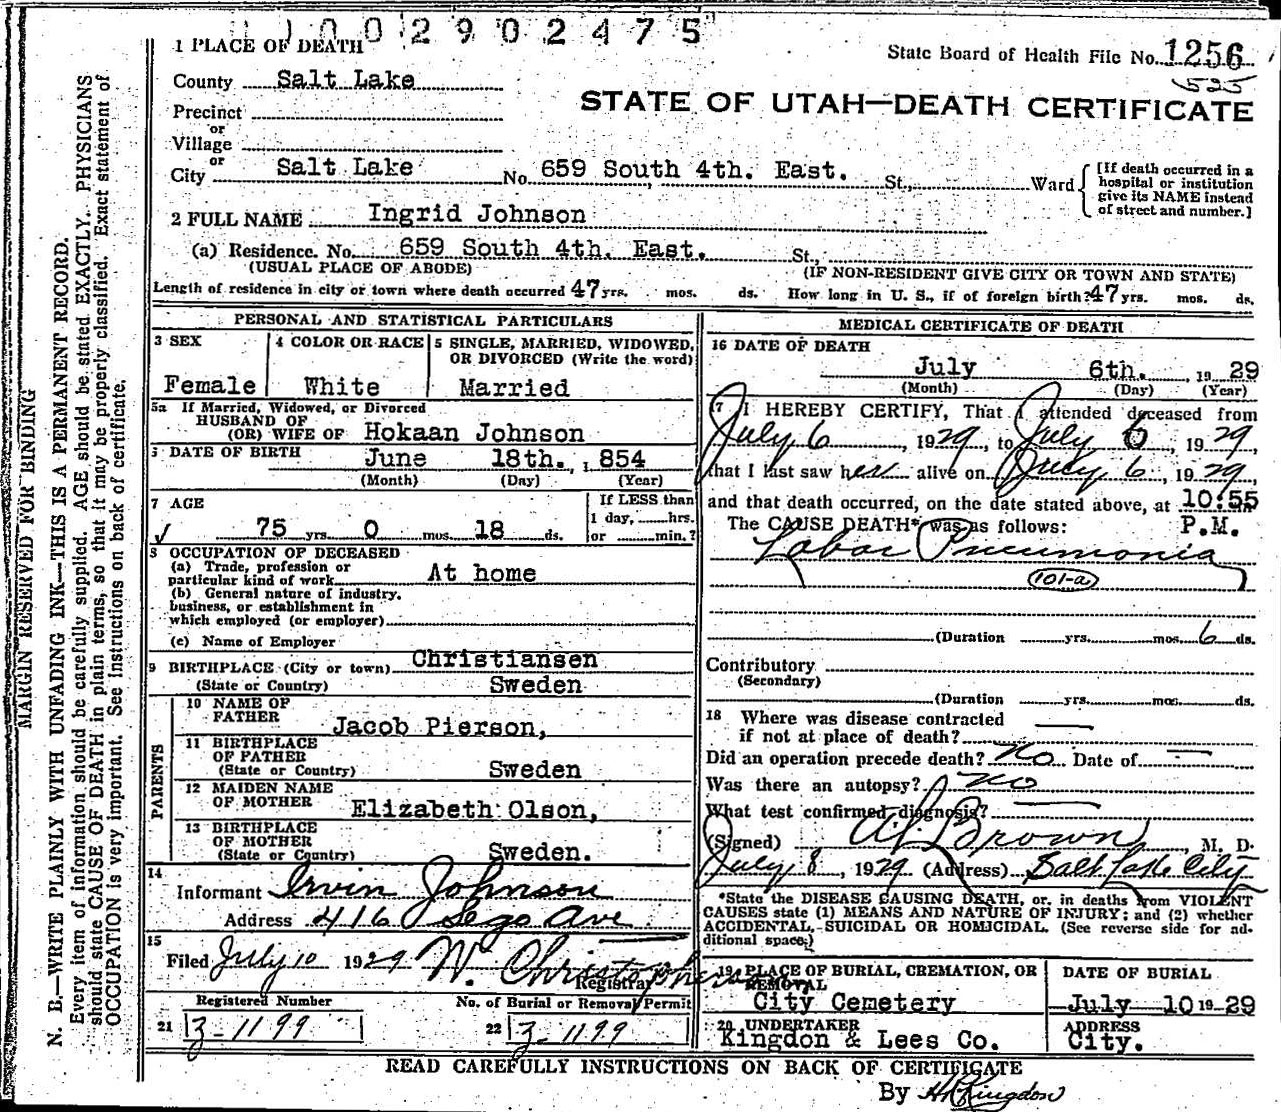 1002902475
1 PLACE OF DEATH
State Board of Health File No. 1256
525
County Salt Lake
STATE OF UTAH—DEATH CERTIFICATE
Precinct
or
Village
or
City Salt Lake No. 659 South 4th. East. St., Ward
[If death occurred in a
hospital or institution
give its NAME instead
of street and number.]
2 FULL NAME Ingrid Johnson
(a) Residence. No. 659 South 4th. East. St.,
(USUAL PLACE OF ABODE) (IF NON-RESIDENT GIVE CITY OR TOWN AND STATE)
Length of residence in city or town where death occurred 47 yrs. mos. ds. How long in U. S., if of foreign birth? 47 yrs. mos. ds.
PERSONAL AND STATISTICAL PARTICULARS
3 SEX
Female
4 COLOR OR RACE
White
5 SINGLE, MARRIED, WIDOWED,
OR DIVORCED (Write the word)
Married
5a If Married, Widowed, or Divorced
HUSBAND OF
(OR) WIFE OF Hokaan Johnson
6 DATE OF BIRTH June 18th., 1854
(Month) (Day) (Year)
7 AGE
75 yrs. 0 mos. 18 ds.
If LESS than
1 day, hrs.
or min.?
8 OCCUPATION OF DECEASED
(a) Trade, profession or
particular kind of work At home
(b) General nature of industry,
business, or establishment in
which employed (or employer)
(c) Name of Employer
9 BIRTHPLACE (City or town) Christiansen
(State or Country) Sweden
PARENTS
10 NAME OF
FATHER Jacob Pierson,
11 BIRTHPLACE
OF FATHER
(State or Country) Sweden
12 MAIDEN NAME
OF MOTHER Elizabeth Olson,
13 BIRTHPLACE
OF MOTHER
(State or Country) Sweden.
14
Informant Irvin Johnson
Address 416 Sego Ave
15
Filed July 10 1929 W. Christopherson
Registrar
Registered Number
21 3-1199
No. of Burial or Removal Permit
22 3-1199
MEDICAL CERTIFICATE OF DEATH
16 DATE OF DEATH
July 6th. 1929
(Month) (Day) (Year)
17 I HEREBY CERTIFY, That I attended deceased from
July 6, 1929, to July 6, 1929
that I last saw her alive on July 6, 1929
and that death occurred, on the date stated above, at 10:55
P.M.
The CAUSE DEATH* was as follows:
Lobar Pneumonia
101-a
(Duration yrs. mos. 6 ds.
Contributory
(Secondary)
(Duration yrs. mos. ds.
18 Where was disease contracted
if not at place of death?
Did an operation precede death? No Date of —
Was there an autopsy? No
What test confirmed diagnosis?
(Signed) A. L. Brown, M. D.
July 8, 1929 (Address) Salt Lake City
*State the DISEASE CAUSING DEATH, or, in deaths from VIOLENT
CAUSES state (1) MEANS AND NATURE OF INJURY; and (2) whether
ACCIDENTAL, SUICIDAL OR HOMICIDAL. (See reverse side for ad-
ditional space.)
19 PLACE OF BURIAL, CREMATION, OR
REMOVAL
City Cemetery
DATE OF BURIAL
July 10 1929
20 UNDERTAKER
Kingdon & Lees Co.
ADDRESS
City.
READ CAREFULLY INSTRUCTIONS ON BACK OF CERTIFICATE
By H R Kingdon
MARGIN RESERVED FOR BINDING
N. B.—WRITE PLAINLY WITH UNFADING INK—THIS IS A PERMANENT RECORD.
Every item of information should be carefully supplied. AGE should be stated EXACTLY. PHYSICIANS
should state CAUSE OF DEATH in plain terms, so that it may be properly classified. Exact statement of
OCCUPATION is very important. See instructions on back of certificate.